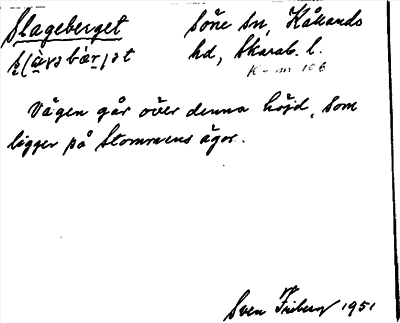 Slageberget Söne sn, Kållands
hd, Skarab. l.
Vägen går över denna höjd, som
ligger på Stommens ägor.
Sven Friberg 1951